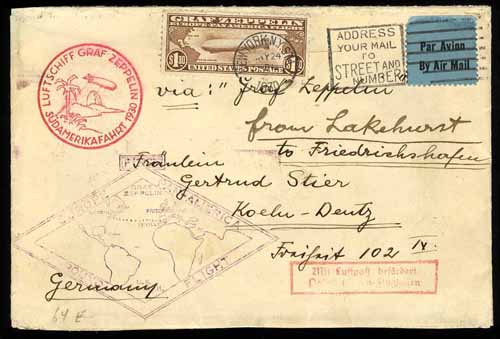 LUFTSCHIFF GRAF ZEPPELIN
SÜDAMERIKAFAHRT 1930
GRAF ZEPPELIN
EUROPE PAN AMERICA FLIGHT
$1.30
UNITED STATES POSTAGE
1930
ADDRESS
YOUR MAIL
TO
STREET AND
NUMBER
Par Avion
By Air Mail
via: Graf Zeppelin
from Lakehurst
to Friedrichshafen
Fräulein
Gertrud Stier
Koeln-Deutz
Freiheit 102 IV.
Germany
GRAF
ZEPPELIN
FLIGHT
Mit Luftpost befördert
64 E